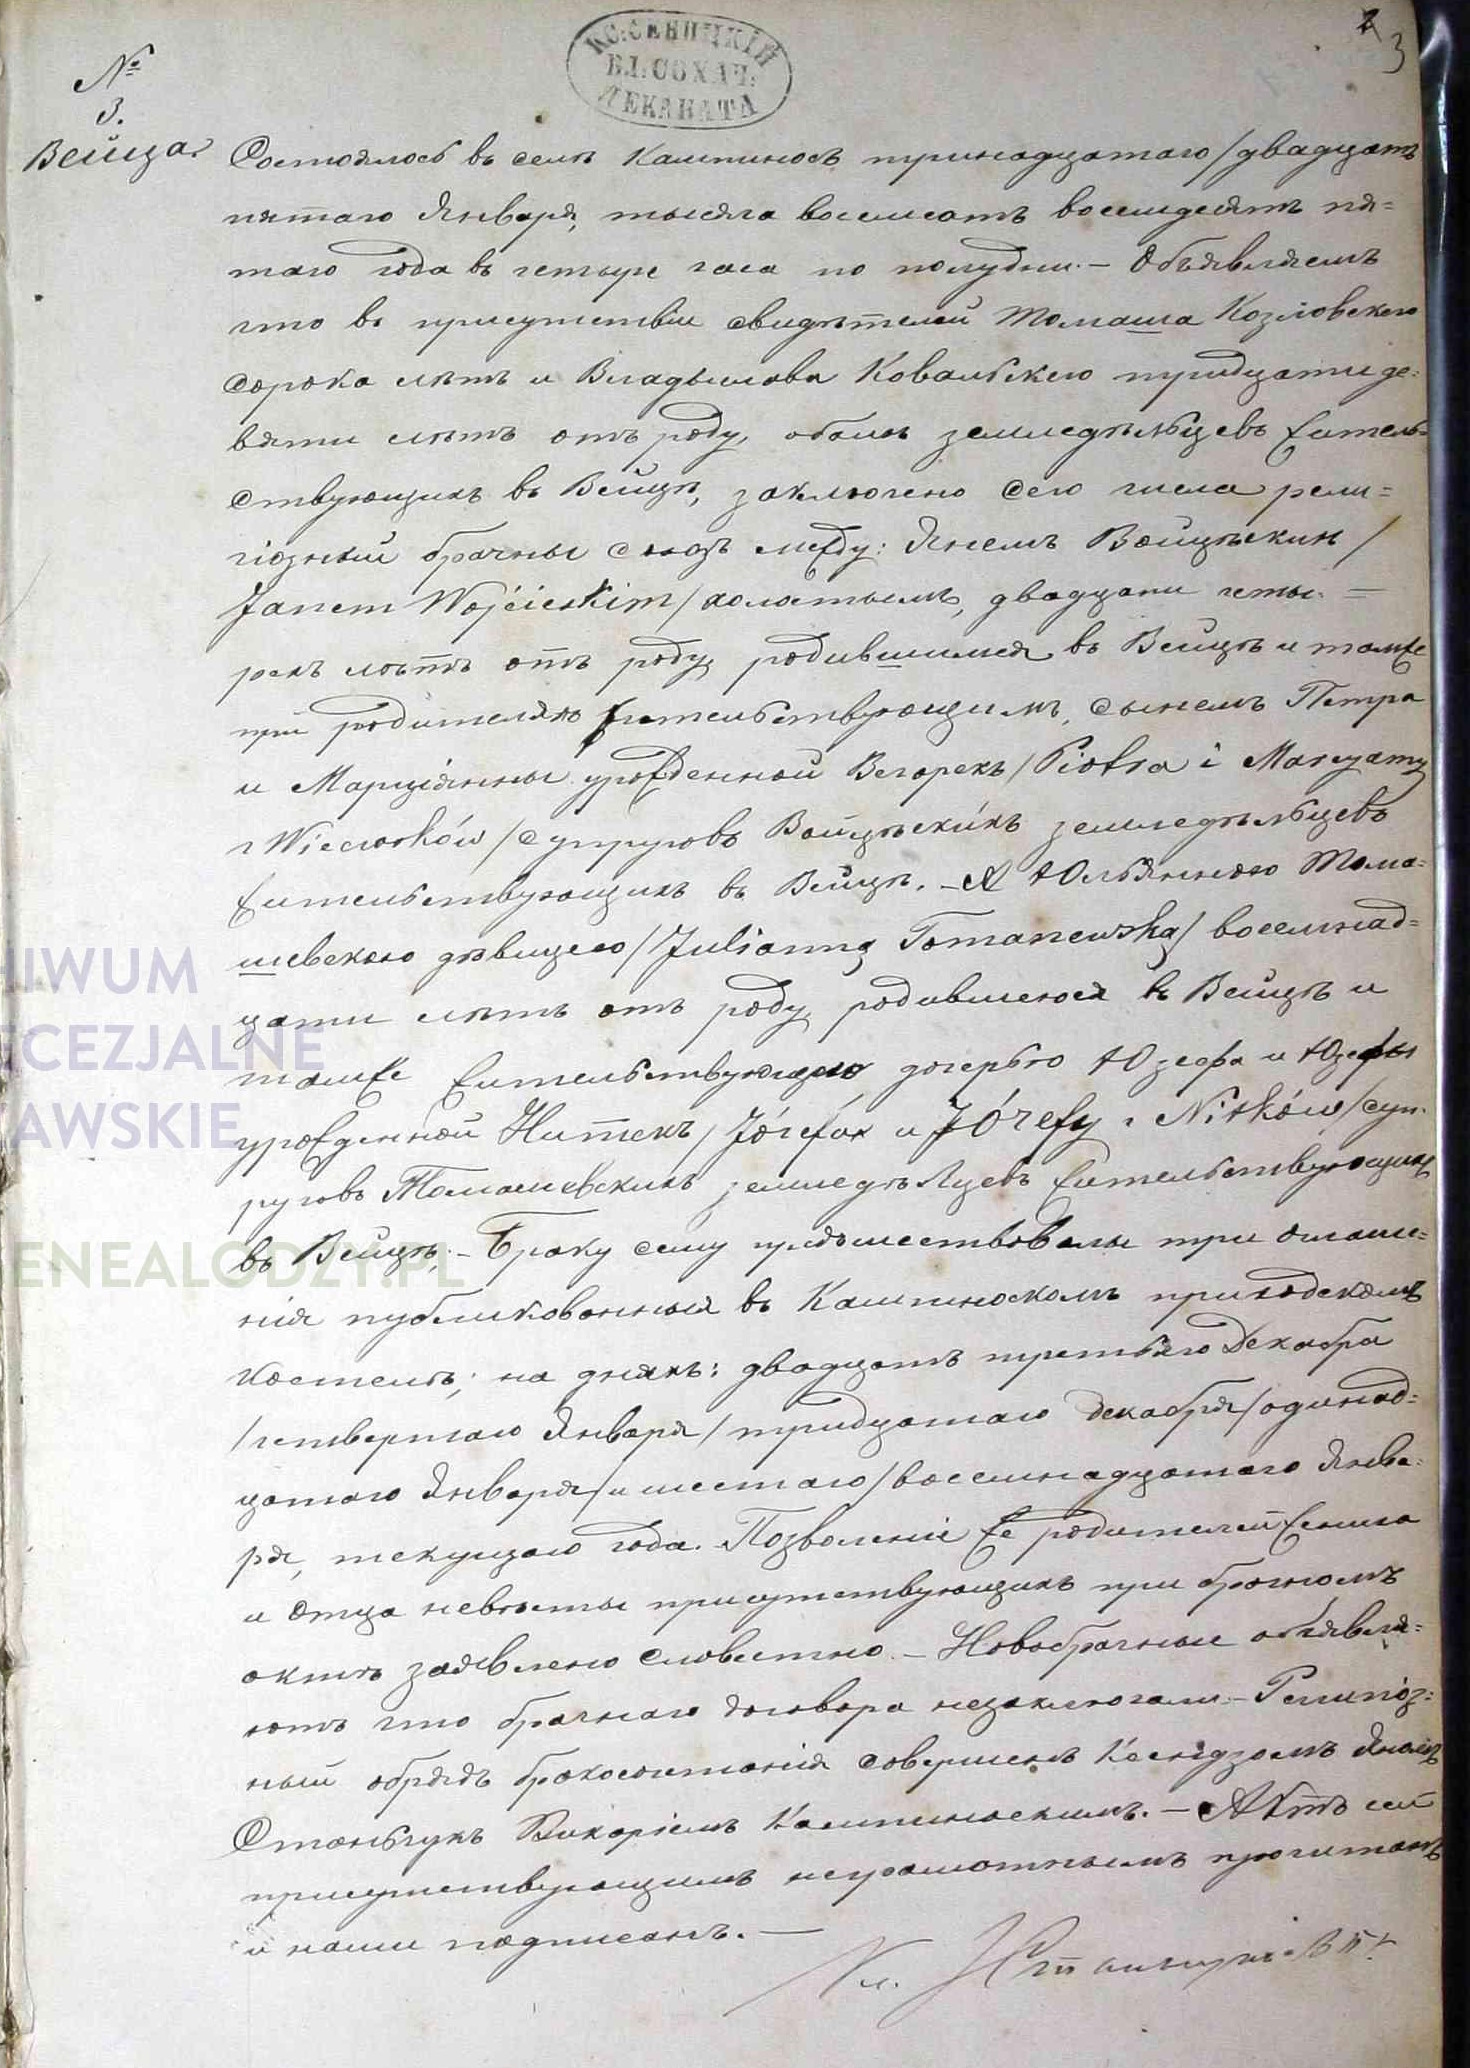 КС. СЕНИЦКІЙ
В.І. СОХАЧ.
ДЕКАНАТА
3
№
3.
Вейца.
Состоялось въ селѣ Кампиносъ тринадцатаго /двадцать
пятаго Января, тысяча восемсотъ восемдесятъ пя=
таго года въ четыре часа по полудни. – Объявляемъ
что въ присутствіи свидѣтелей Томаша Козловскаго
сорока лѣтъ и Владыслава Ковальскаго тридцати де=
вяти лѣтъ отъ роду, обоихъ земледѣльцевъ житель=
ствующихъ въ Вейцѣ, заключено сего числа рели=
гіозный брачны союзъ между: Янемъ Войцѣскимъ /
Janem Wojcieskim/ холостымъ, двадцати четы. =
рехъ лѣтъ отъ роду, родившимся въ Вейцѣ и тамже
при родителяхъ жительствующимъ, сынемъ Петра
и Марціянны урожденной Вечорекъ /Piotra i Marcyanny
z Wieciorków/ супруговъ Войцѣскихъ земледѣльцевъ
жительствующихъ въ Вейцѣ. – А Юльянною Тома=
шевскою дѣвицею /Julianną Tomaszewską/ восемнад=
цати лѣтъ отъ роду, родившеюся въ Вейцѣ и
тамже жительствующею дочерью Юзефа и Юзефы
урожденной Нитекъ /Józefa и Józefy z Nitków/ суп.
руговъ Томашевскихъ земледѣльцевъ жительствующихъ
въ Вейцѣ. – Браку сему предшествовалы три оглаше=
нія публикованныя въ Кампиноскомъ приходскомъ
костелѣ, на дняхъ: двадцать третьяго Декабра
/четвертаго Января/ тридцатаго декабря /одинад=
цатаго Января/ и шестаго /восемнадцатаго Янва=
ря, текущаго года. Позволеніе же родителей жениха
и отца невѣсты присутствующихъ при брачномъ
актѣ заявлено словестно. – Новобрачные объявля=
ютъ что брачнаго договора незаключали – Религіоз=
ный обрядъ бракосочетанія совершенъ Ксендзомъ Яномъ
Станьчукъ Викаріемъ Кампиноскимъ. – Актъ сей
присутствующимъ неграмотнымъ прочитанъ
и нами подписанъ. –